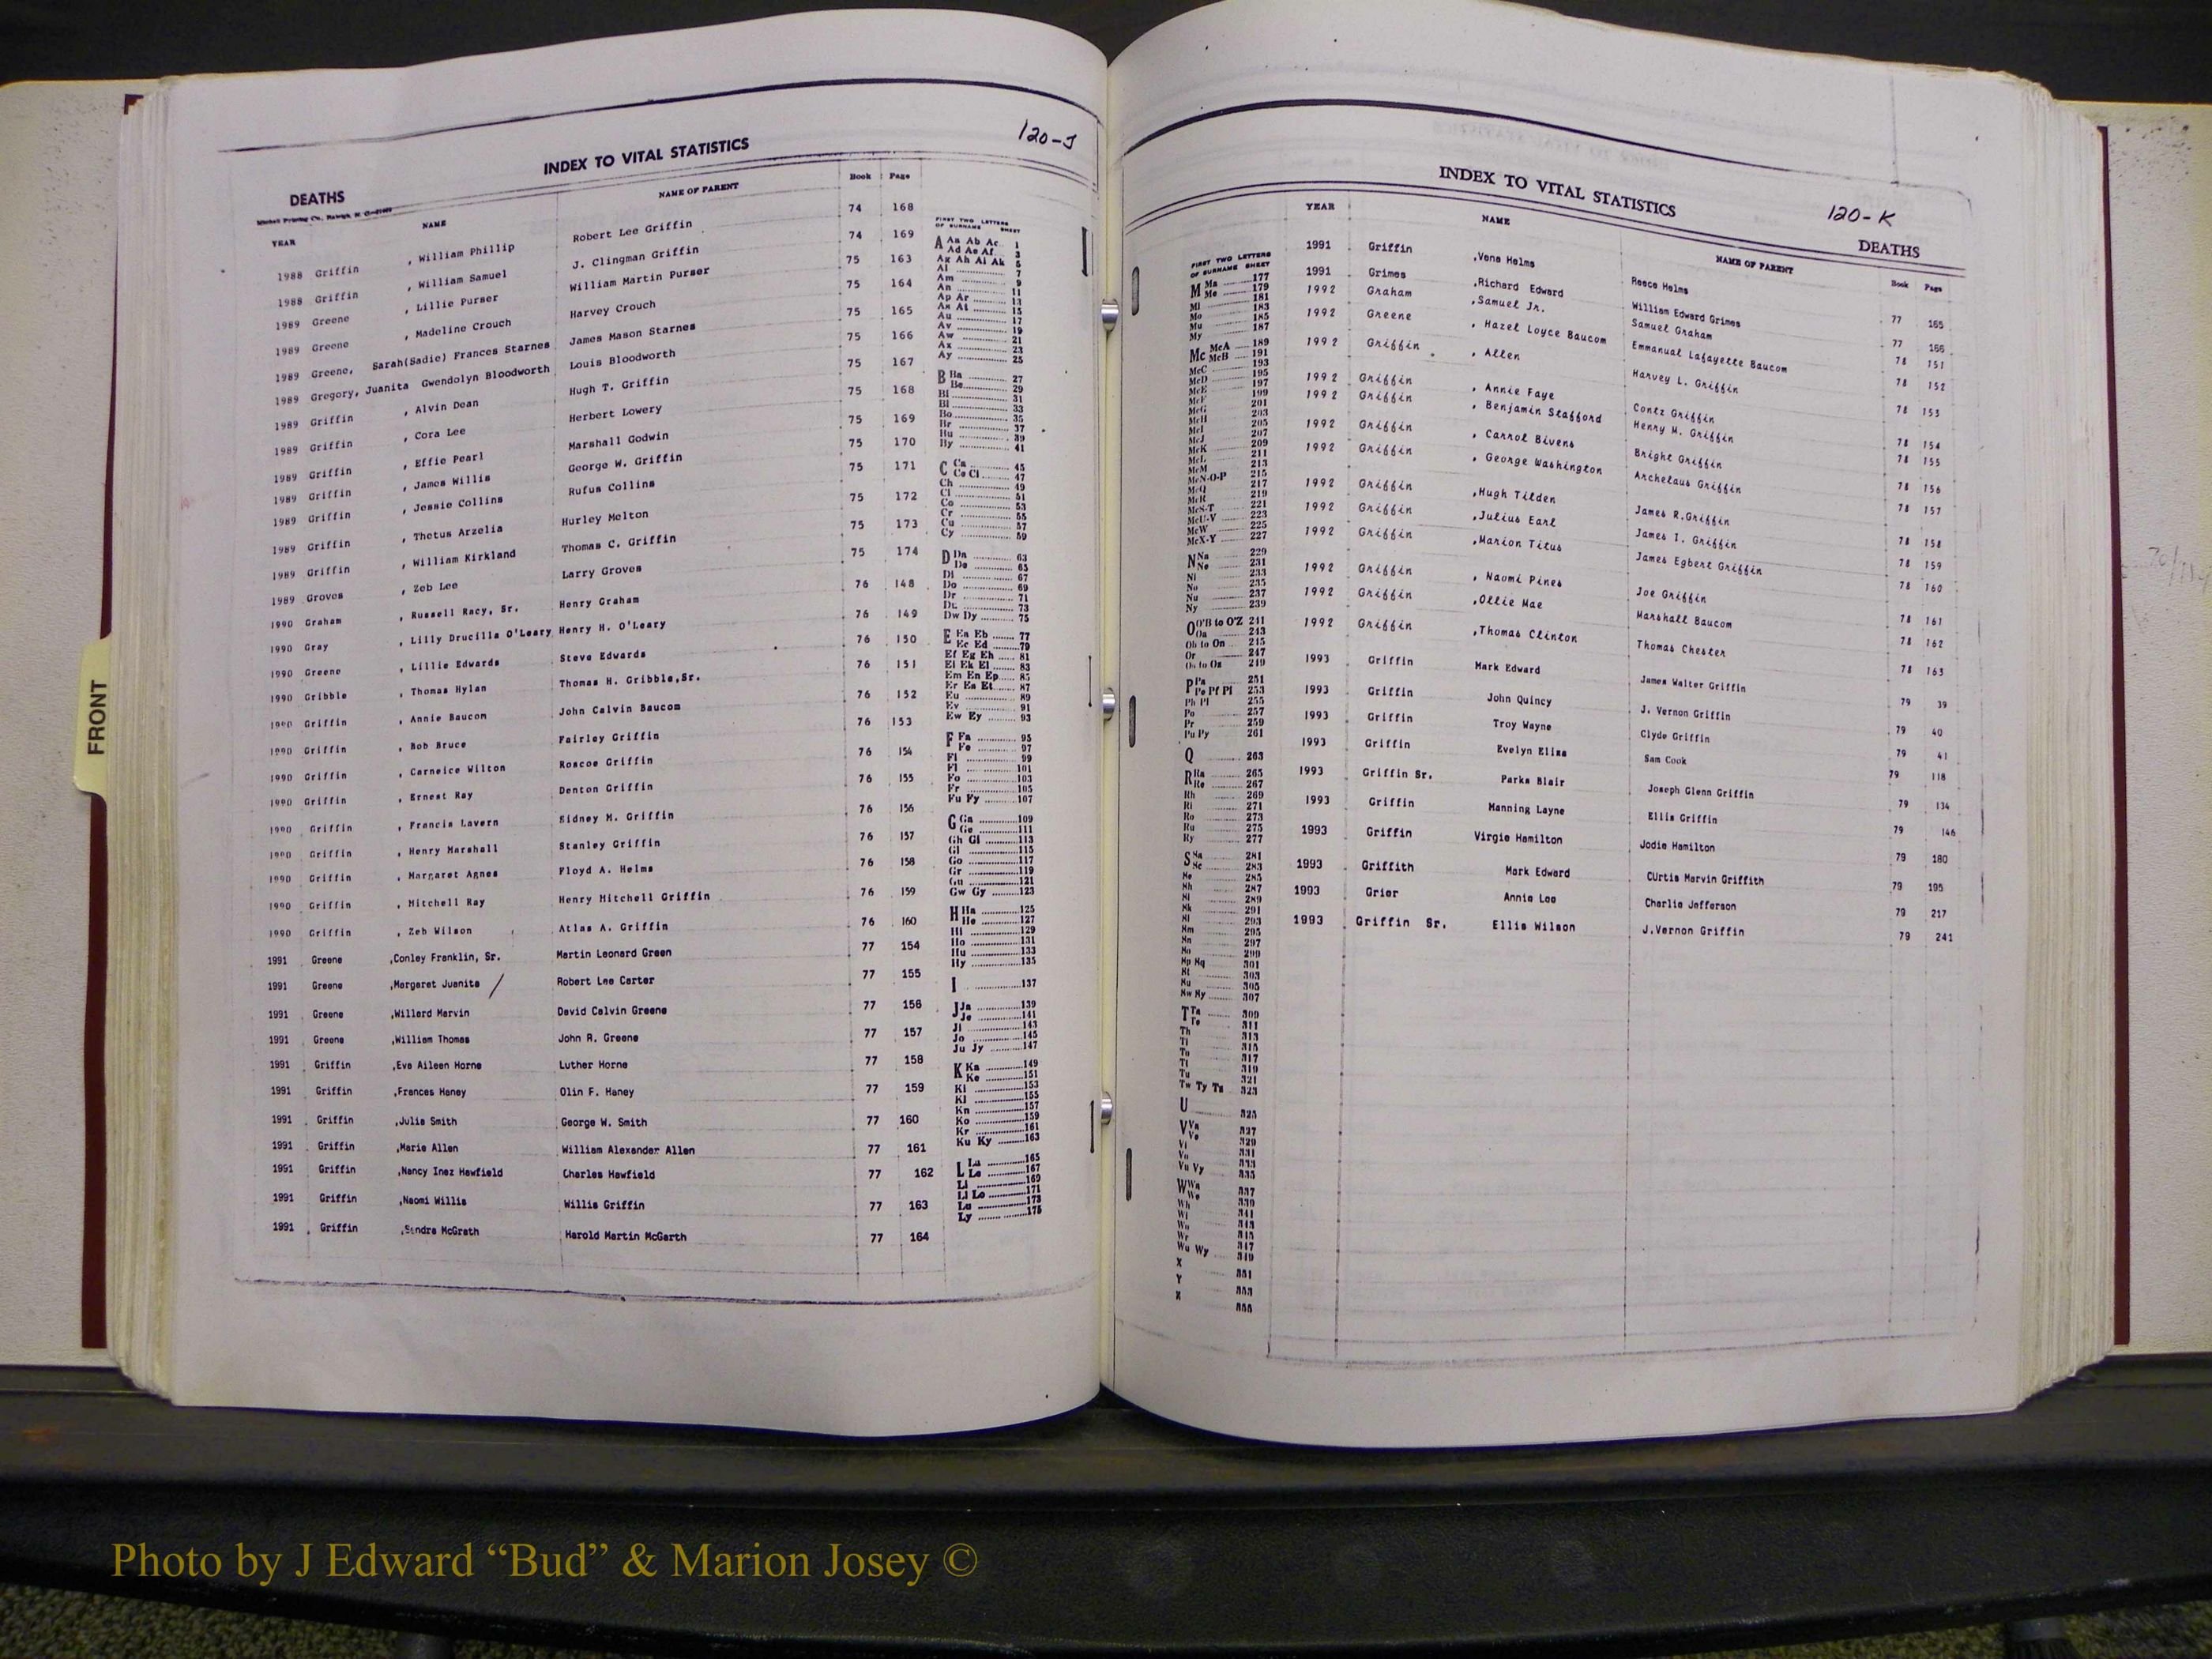 120-J
INDEX TO VITAL STATISTICS
DEATHS
YEAR NAME NAME OF PARENT Book Page
1988 Griffin , William Phillip Robert Lee Griffin 74 168
1988 Griffin , William Samuel J. Clingman Griffin 74 169
1989 Greene , Lillie Purser William Martin Purser 75 163
1989 Greene , Madeline Crouch Harvey Crouch 75 164
1989 Greene, Sarah(Sadie) Frances Starnes James Mason Starnes 75 165
1989 Gregory, Juanita Gwendolyn Bloodworth Louis Bloodworth 75 166
1989 Griffin , Alvin Dean Hugh T. Griffin 75 167
1989 Griffin , Cora Lee Herbert Lowery 75 168
1989 Griffin , Effie Pearl Marshall Godwin 75 169
1989 Griffin , James Willis George W. Griffin 75 170
1989 Griffin , Jessie Collins Rufus Collins 75 171
1989 Griffin , Thetus Arzelia Hurley Melton 75 172
1989 Griffin , William Kirkland Thomas C. Griffin 75 173
1989 Groves , Zeb Lee Larry Groves 75 174
1990 Graham , Russell Racy, Sr. Henry Graham 76 148
1990 Gray , Lilly Drucilla O'Leary Henry H. O'Leary 76 149
1990 Greene , Lillie Edwards Steve Edwards 76 150
1990 Gribble , Thomas Hylan Thomas H. Gribble,Sr. 76 151
1990 Griffin , Annie Baucom John Calvin Baucom 76 152
1990 Griffin , Bob Bruce Fairley Griffin 76 153
1990 Griffin , Carneice Wilton Roscoe Griffin 76 154
1990 Griffin , Ernest Ray Denton Griffin 76 155
1990 Griffin , Francis Lavern Sidney M. Griffin 76 156
1990 Griffin , Henry Marshall Stanley Griffin 76 157
1990 Griffin , Margaret Agnes Floyd A. Helms 76 158
1990 Griffin , Mitchell Ray Henry Mitchell Griffin 76 159
1990 Griffin , Zeb Wilson Atlas A. Griffin 76 160
1991 Greene ,Conley Franklin, Sr. Martin Leonard Green 77 154
1991 Greene ,Margaret Juanita / Robert Lee Carter 77 155
1991 Greene ,Willard Marvin David Calvin Greene 77 156
1991 Greene ,William Thomas John R. Greene 77 157
1991 Griffin ,Eva Aileen Horne Luther Horne 77 158
1991 Griffin ,Frances Haney Olin F. Haney 77 159
1991 Griffin ,Julia Smith George W. Smith 77 160
1991 Griffin ,Marie Allen William Alexander Allen 77 161
1991 Griffin ,Nancy Inez Hawfield Charles Hawfield 77 162
1991 Griffin ,Naomi Willis Willis Griffin 77 163
1991 Griffin ,Sandra McGrath Harold Martin McGarth 77 164
FIRST TWO LETTERS
OF SURNAME SHEET
A Aa Ab Ac 1
Ad Ae Af 3
Ag Ah Ai Ak 5
Al 7
Am 9
An 11
Ap Ar 13
As At 15
Au 17
Av 19
Aw 21
Ax 23
Ay 25
B Ba 27
Be 29
Bi 31
Bl 33
Bo 35
Br 37
Bu 39
By 41
C Ca 45
Ce Ci 47
Ch 49
Cl 51
Co 53
Cr 55
Cu 57
Cy 59
D Da 63
De 65
Di 67
Do 69
Dr 71
Du 73
Dw Dy 75
E Ea Eb 77
Ec Ed 79
Ef Eg Eh 81
Ei Ek El 83
Em En Ep 85
Er Es Et 87
Eu 89
Ev 91
Ew Ey 93
F Fa 95
Fe 97
Fi 99
Fl 101
Fo 103
Fr 105
Fu Fy 107
G Ga 109
Ge 111
Gh Gi 113
Gl 115
Go 117
Gr 119
Gu 121
Gw Gy 123
H Ha 125
He 127
Hi 129
Ho 131
Hu 133
Hy 135
I 137
J Ja 139
Je 141
Ji 143
Jo 145
Ju Jy 147
K Ka 149
Ke 151
Ki 153
Kl 155
Kn 157
Ko 159
Kr 161
Ku Ky 163
L La 165
Le 167
Li 169
Ll Lo 171
Lu 173
Ly 175
FRONT
INDEX TO VITAL STATISTICS
120-K
DEATHS
YEAR NAME NAME OF PARENT Book Page
1991 Griffin ,Vena Helms Reece Helms 77 165
1991 Grimes ,Richard Edward William Edward Grimes 77 166
1992 Graham ,Samuel Jr. Samuel Graham 78 151
1992 Greene , Hazel Loyce Baucom Emmanual Lafayette Baucom 78 152
1992 Griffin , Allen Harvey L. Griffin 78 153
1992 Griffin , Annie Faye Contz Griffin 78 154
1992 Griffin , Benjamin Stafford Henry M. Griffin 78 155
1992 Griffin , Carrol Bivens Bright Griffin 78 156
1992 Griffin , George Washington Archelaus Griffin 78 157
1992 Griffin ,Hugh Tilden James R.Griffin 78 158
1992 Griffin ,Julius Earl James I. Griffin 78 159
1992 Griffin ,Marion Titus James Egbert Griffin 78 160
1992 Griffin , Naomi Pines Joe Griffin 78 161
1992 Griffin ,Ollie Mae Marshall Baucom 78 162
1992 Griffin ,Thomas Clinton Thomas Chester 78 163
1993 Griffin Mark Edward James Walter Griffin 79 39
1993 Griffin John Quincy J. Vernon Griffin 79 40
1993 Griffin Troy Wayne Clyde Griffin 79 41
1993 Griffin Evelyn Eliza Sam Cook 79 118
1993 Griffin Sr. Parks Blair Joseph Glenn Griffin 79 134
1993 Griffin Manning Layne Ellis Griffin 79 146
1993 Griffin Virgie Hamilton Jodie Hamilton 79 180
1993 Griffith Mark Edward CUrtis Marvin Griffith 79 195
1993 Grier Annie Lee Charlie Jefferson 79 217
1993 Griffin Sr. Ellis Wilson J.Vernon Griffin 79 241
FIRST TWO LETTERS
OF SURNAME SHEET
M Ma 177
Me 179
Mi 181
Mo 183
Mu 185
My 187
Mc McA 189
McB 191
McC 193
McD 195
McE 197
McF 199
McG 201
McH 203
McI 205
McJ 207
McK 209
McL 211
McM 213
McN-O-P 215
McQ 217
McR 219
McS-T 221
McU-V 223
McW 225
McX-Y 227
N Na 229
Ne 231
Ni 233
No 235
Nu 237
Ny 239
O O'B to O'Z 241
Oa 243
Ob to On 245
Or 247
Os to Oz 249
P Pa 251
Pe Pf Pi 253
Ph Pl 255
Po 257
Pr 259
Pu Py 261
Q 263
R Ra 265
Re 267
Rh 269
Ri 271
Ro 273
Ru 275
Ry 277
S Sa 281
Sc 283
Se 285
Sh 287
Si 289
Sk 291
Sl 293
Sm 295
Sn 297
So 299
Sp Sq 301
St 303
Su 305
Sw Sy 307
T Ta 309
Te 311
Th 313
Ti 315
To 317
Tr 319
Tu 321
Tw Ty Tz 323
U 325
V Va 327
Ve 329
Vi 331
Vo 333
Vu Vy 335
W Wa 337
We 339
Wh 341
Wi 343
Wo 345
Wr 347
Wu Wy 349
X 351
Y 353
Z 355
Photo by J Edward “Bud” & Marion Josey ©